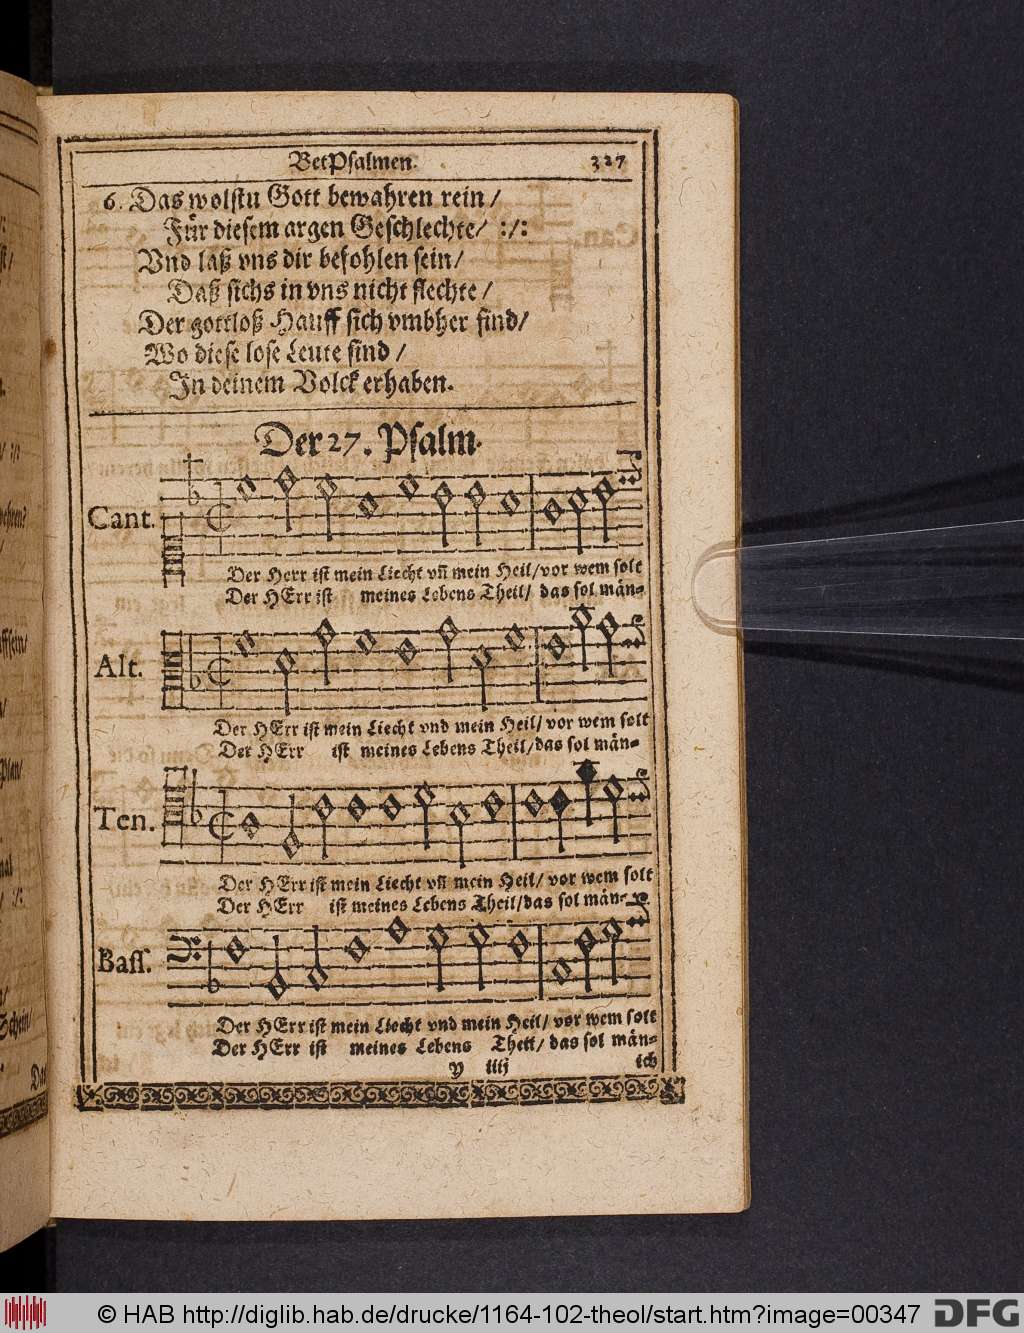 BetPsalmen. 327
6. Das wolstu Gott bewahren rein /
Fůr diesem argen Geschlechte / :/:
Vnd laß vns dir befohlen sein /
Daß sichs in vns nicht flechte /
Der gottloß Hauff sich vmbher find /
Wo diese lose Leute sind /
In deinem Volck erhaben.
Der 27. Psalm.
Cant.
Der Herr ist mein Liecht vn̄ mein Heil / vor wem solt
Der HErr ist meines Lebens Theil / das sol män=
Alt.
Der HErr ist mein Liecht vnd mein Heil / vor wem solt
Der HErr ist meines Lebens Theil / das sol män=
Ten.
Der HErr ist mein Liecht vn̄ mein Heil / vor wem solt
Der HErr ist meines Lebens Theil / das sol män=
Bass.
Der HErr ist mein Liecht vnd mein Heil / vor wem solt
Der HErr ist meines Lebens Theil / das sol män=
y iiij ich
© HAB http://diglib.hab.de/drucke/1164-102-theol/start.htm?image=00347 DFG